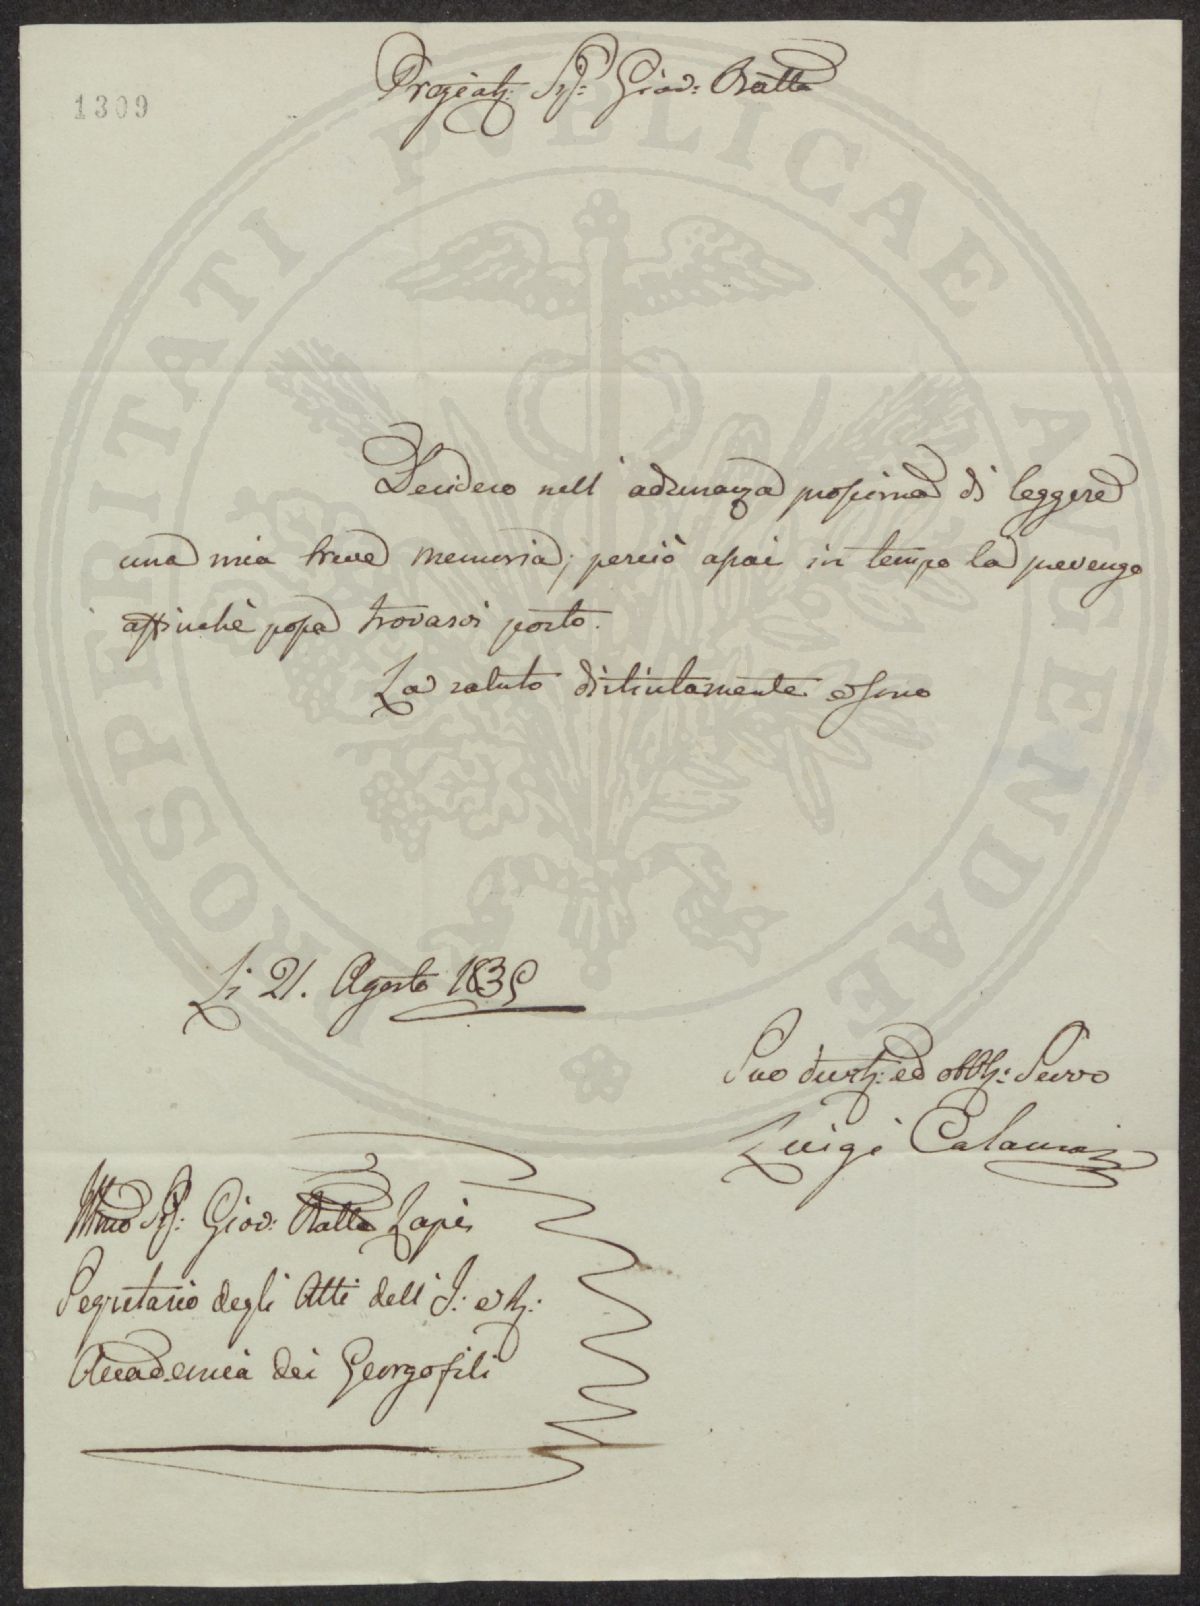 1309
Pregiat: Sig: Giov: Batta
Desidero nell'adunanza prossima di leggere
una mia breve memoria; perciò assai in tempo la prevengo
affinchè possa trovarvi posto.
La saluto distintamente e sono
Li 21. Agosto 1835
Suo devot: ed obb: Servo
Luigi Calamai
Illmo Sig: Giov: Batta Lapi
Segretario degli Atti dell'I: e R:
Accademia dei Georgofili
PROSPERITATI PUBLICAE AUGENDAE